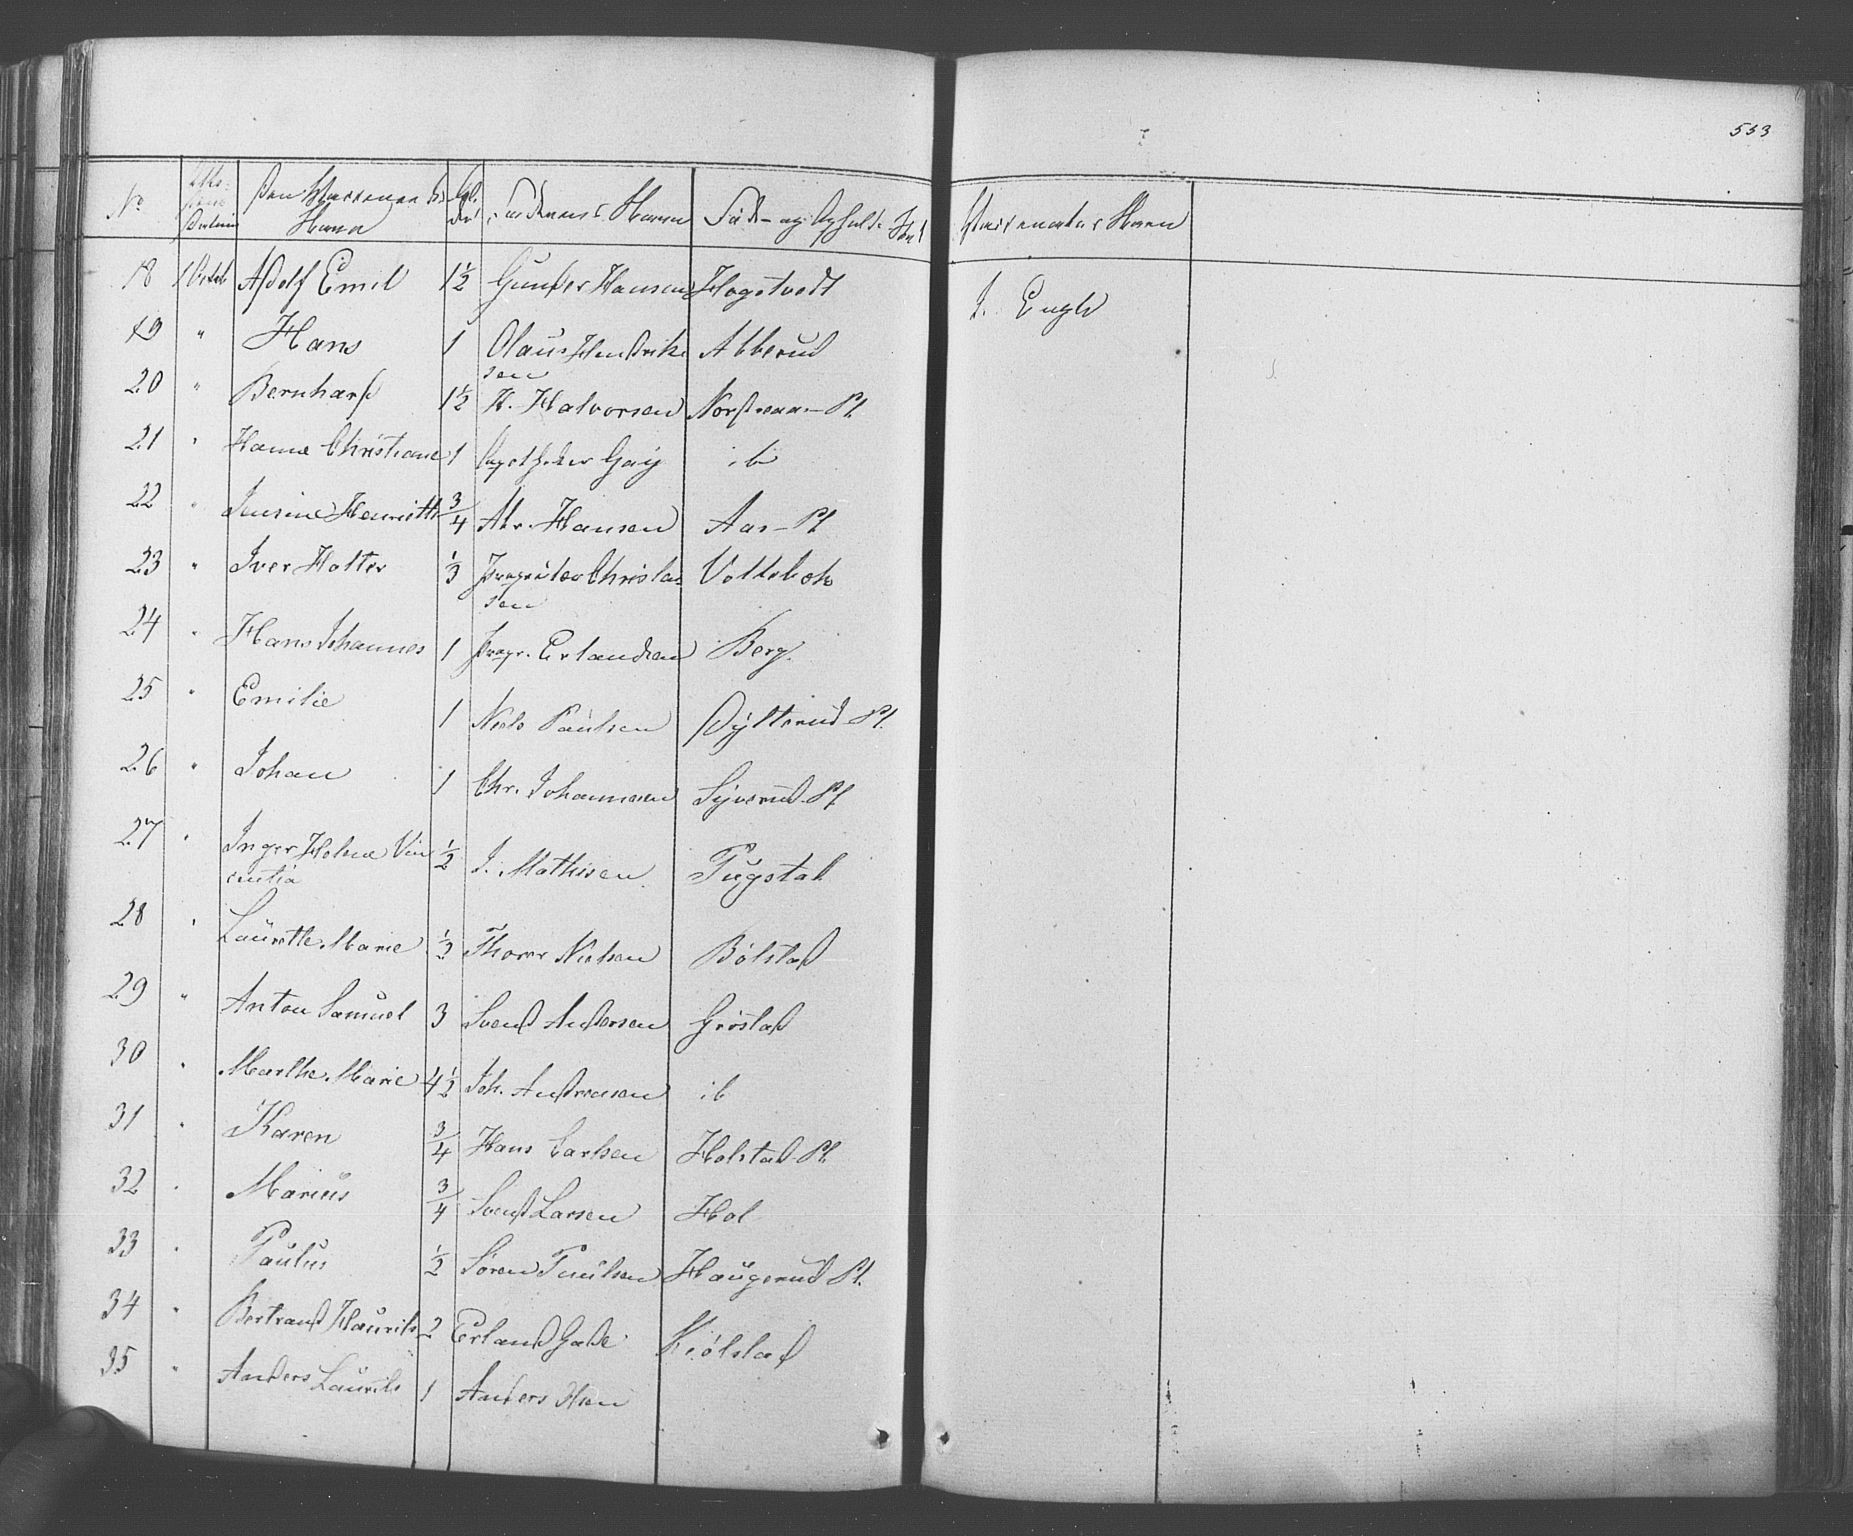 553
No
Den Vaccineredes Navn
Alder
Faderens Navn
Føde- og Opholds Sted
Vaccinateurs Navn
18 1 Octob Adolf Emil 1 1/2 Gunder Hansen Hogstvedt J. Engh
19 " Hans 1 Olaus Hendrik
sen Abberud
20 " Bernhard 1 1/2 H. Halvorsen Nordraa - Pl
21 " Hanna Christiane 1 Apotheker ib
22 " Jensine Henriette 3/4 Hansen Aas - Pl
23 " Iver Holter 1/3 Proprietær Christen
sen Vollebek
24 " Hans Johannes 1 Propr. Erlandsen Berg.
25 " Emilie 1 Niels Paulsen Dylterud Pl.
26 " Johan 1 Chr. Johannesen Syverud Pl
27 " Inger Helene Vin
centia 1/2 J. Mathisen Tugstad
28 " Laurette Marie 1/3 Thorer Nielsen Bølstad
29 " Anton Samuel 3 Svend Andersen Grøstad
30 " Marthe Marie 4 1/2 Joh. Andreasen ib
31 " Karen 3/4 Hans Carlsen Holstad Pl
32 " Marius 3/4 Svend Larsen Hol
33 " Paulus 1/2 Søren Paulsen Haugerud Pl.
34 " Bertrand Hauritz 2 Erland Gade Kiølstad
35 " Anders Laurits 1 Anders